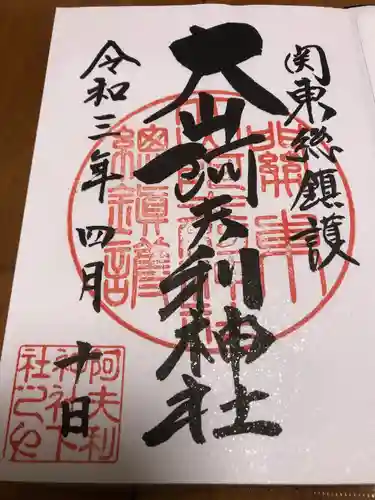 関東総鎮護
大山阿夫利神社
令和三年四月十日
關東總鎮護
阿夫利神社下社之印